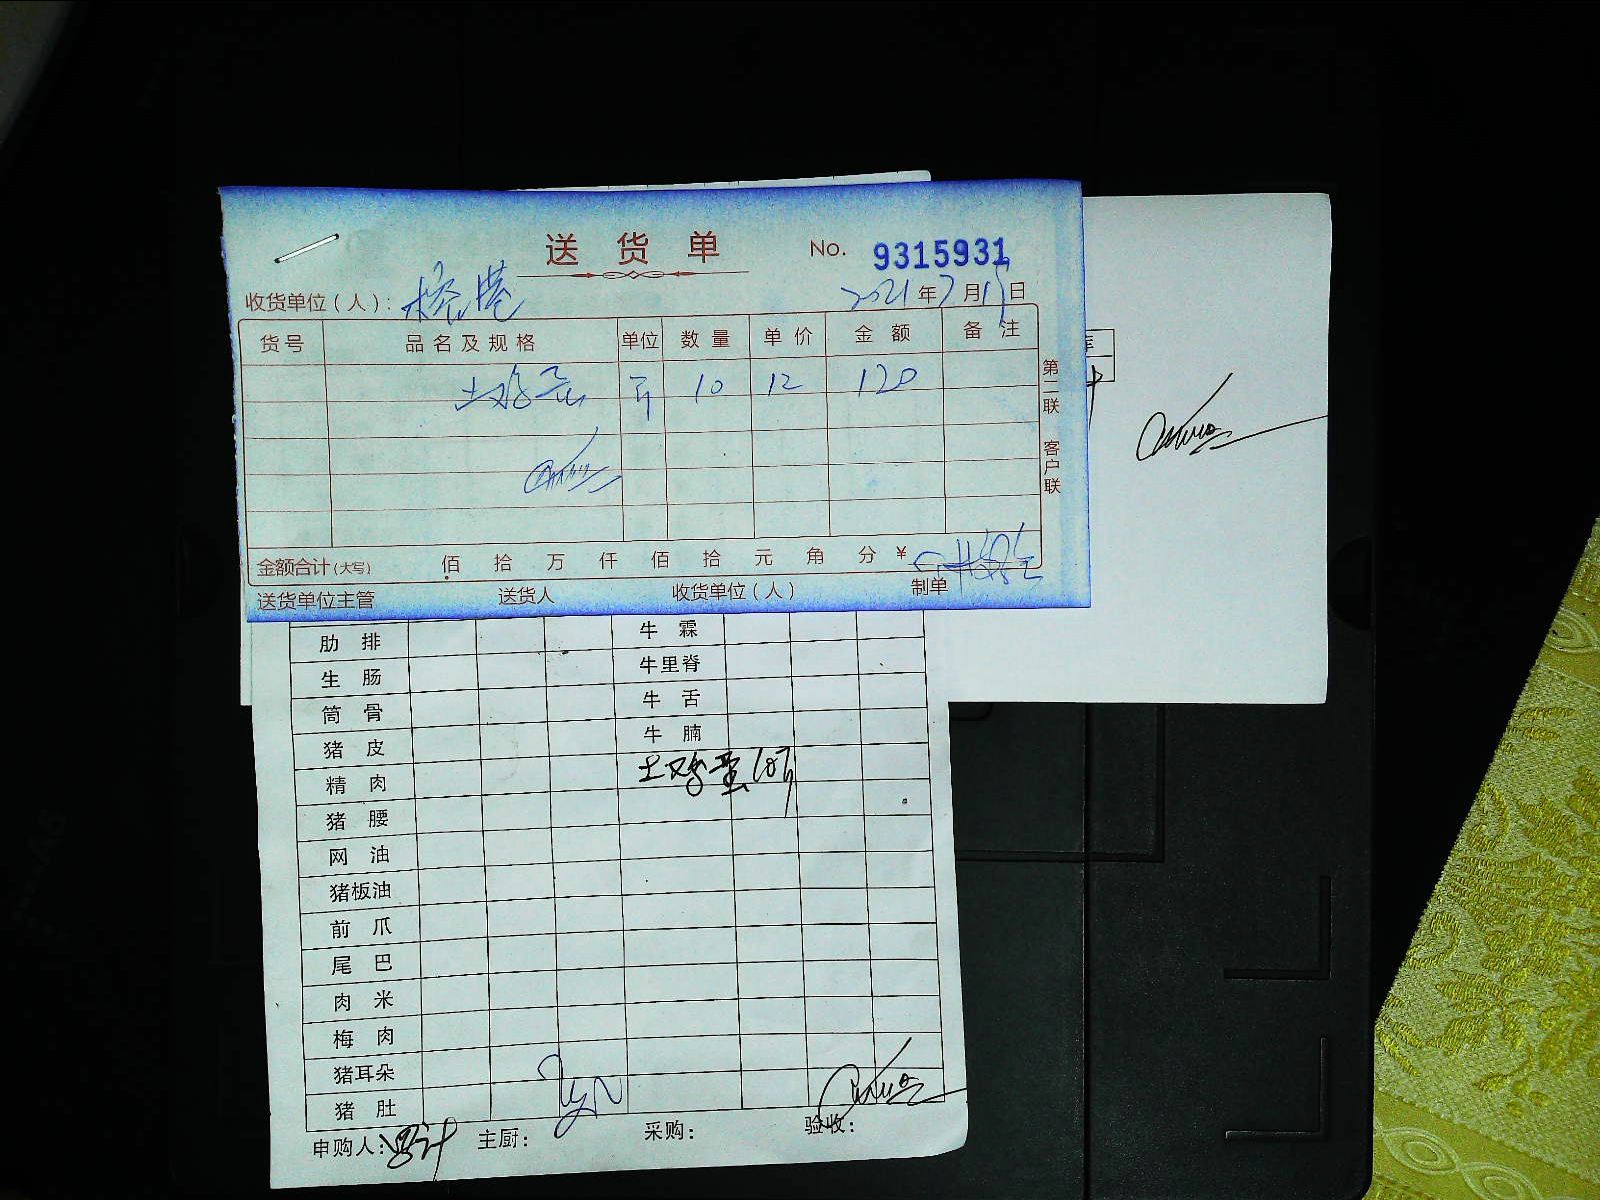 送货单 No. 9315931
收货单位（人）： 2021年7月 日
货号 品名及规格 单位 数量 单价 金额 备注
土鸡蛋 斤 10 12 120
第二联 客户联
金额合计(大写) 佰 拾 万 仟 佰 拾 元 角 分 ¥
送货单位主管 送货人 收货单位（人） 制单
肋排 牛霖
生肠 牛里脊
筒骨 牛舌
猪皮 牛腩
精肉 土鸡蛋 10斤
猪腰
网油
猪板油
前爪
尾巴
肉米
梅肉
猪耳朵
猪肚
申购人： 主厨： 采购： 验收：